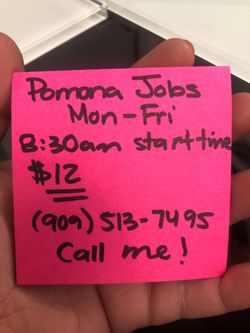 Pomona Jobs
Mon-Fri
8:30am start time
$12
(909) 513-7495
Call me!